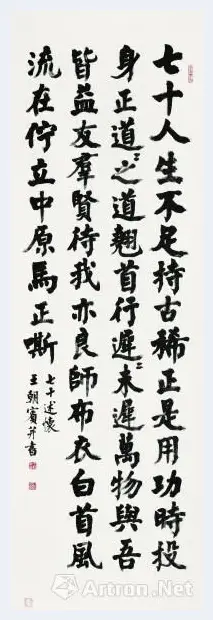 七十人生不足持古稀正是用功時投
身正道之道翹首行遲未遲萬物與吾
皆益友群賢待我亦良師布衣白首風
流在佇立中原馬正嘶
七十述懷
王朝賓并書
Artron.Net